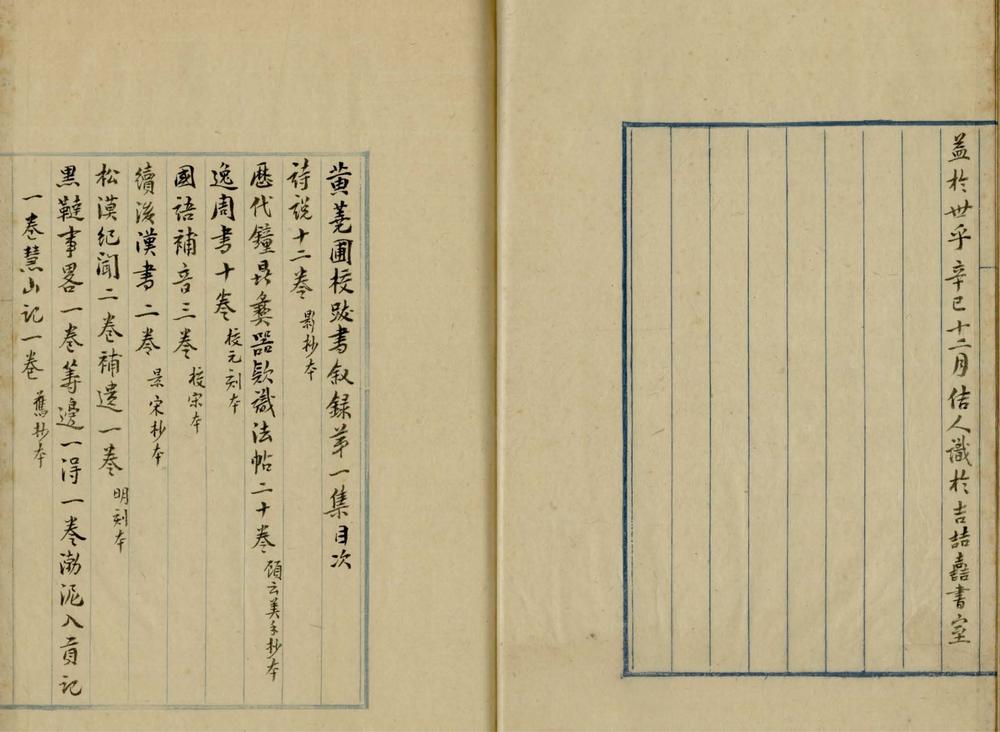 益於世乎辛巳十二月佶人識於吉喆嘉書室
黄蕘圃校跋書叙録苐一集目次
詩説十二卷 影抄本
歷代鐘鼎彝器欵識法帖二十卷 顧云美手抄本
逸周書十卷 校元刻本
國語補音三卷 校宋本
續後漢書二卷 景宋抄本
松漠紀聞二卷補遺一卷 明刻本
黒韃事畧一卷籌邊一得一卷渤泥入貢記
一卷慧山記一卷 舊抄本